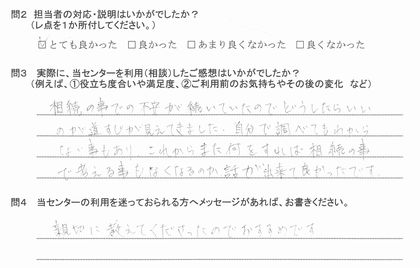 問2 担当者の対応・説明はいかがでしたか?
(レ点を1か所付してください。)
☑とても良かった □良かった □あまり良くなかった □良くなかった
問3 実際に、当センターを利用(相談)したご感想はいかがでしたか?
(例えば、①役立ち度合いや満足度、②ご利用前のお気持ちやその後の変化 など)
相続の事での不安が続いていたのでどうしたらいい
のか道すじが見えてきました。自分で調べてもわから
ない事もあり、これからまた何をすれば相続の事
で考える事もなくなるのか話が出来て良かったです。
問4 当センターの利用を迷っておられる方へメッセージがあれば、お書きください。
親切に教えてくださったのでおすすめです